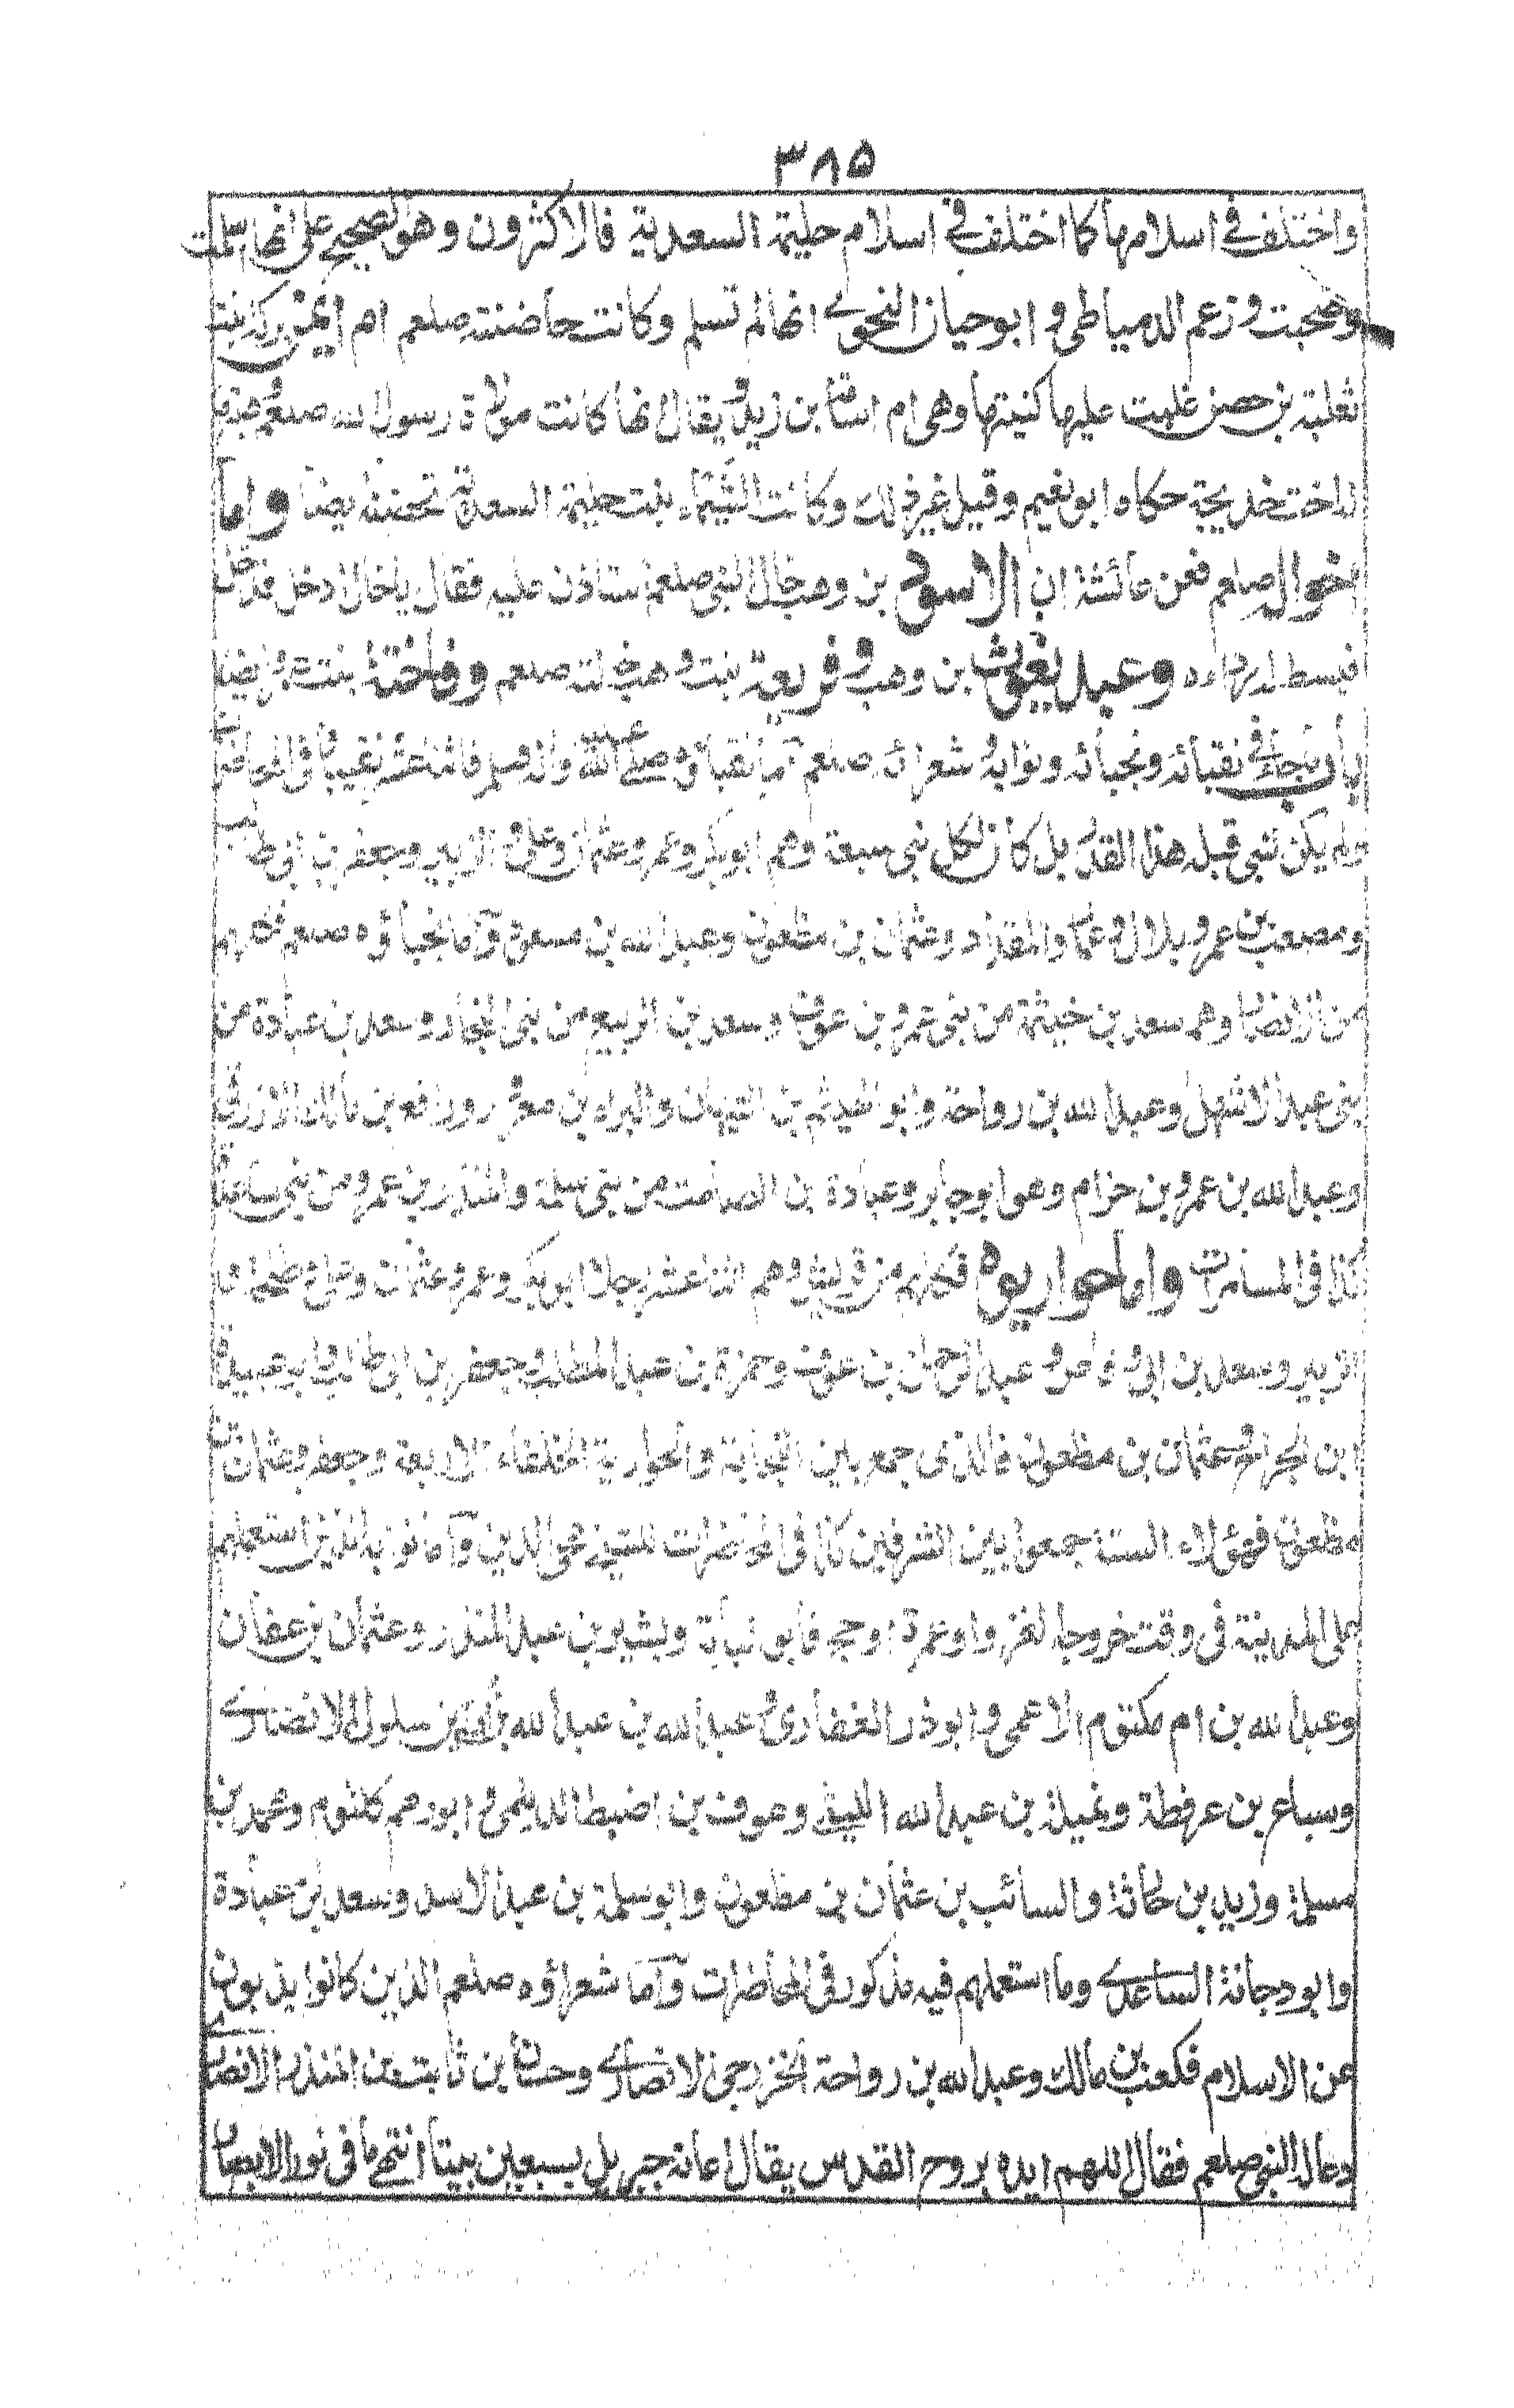 ٣٨٥
واختلف في اسلامها كما اختلف في اسلام حليمة السعدية فالاكثرون وهو الصحيح على انها اسلمت
وصحبت وزعم الدمياطي و ابو حيان النحوي انها لم تسلم وكانت حاضنته صلعم ام ايمن بركة بنت
ثعلبة بن حصن غلبت عليها كنيتها وهي ام اسامة بن زيد ويقال انها كانت مولاة رسول الله صلعم
لاخت خديجة حكاه ابو نعيم وقيل غير ذلك وكانت الشيماء بنت حليمة السعدية تحضنه ايضا واما
اخواله صلعم فعن عائشة ان الاسود بن وهب خال النبي صلعم استاذن عليه فقال يا خال ادخل فدخل
فبسط له رداءه وعبد يغوث بن وهب وفريعة بنت وهب خالته صلعم وفاختة بنت
في نقبائه ونجبائه ونوابه وشعرائه صلعم اما نقباؤه صلى الله عليه واله وسلم فاثنا عشر نقيبا في المحاضرات
ولم يكن لنبي قبله هذا القدر بل كان لكل نبي سبعة وهم ابوبكر وعمر وعثمان وعلي والزبير وجعفر بن ابي طالب
ومصعب بن عمير وبلال وعمار والمقداد وعثمان بن مظعون وعبد الله بن مسعود واما نجباؤه صلعم فكلهم
من الانصار وهم سعد بن خيثمة من بني عمرو بن عوف وسعد بن الربيع من بني النجار وسعد بن عبادة من
بني عبد الاشهل وعبد الله بن رواحة وابو الهيثم بن التيهان والبراء بن معرور ورافع بن مالك الازرقي
وعبد الله بن عمرو بن حزام وهو ابو جابر وعبادة بن الصامت من بني سلمة والمنذر بن عمرو من بني ساعدة
كذا في المسامرات واما حواريوه فكلهم من قريش وهم اثنا عشر رجلا ابو بكر وعمر وعثمان وعلي وطلحة و
الزبير وسعد بن ابي وقاص و عبد الرحمان بن عوف وحمزة بن عبد المطلب وجعفر بن ابي طالب وابو عبيدة
ابن الجراح وعثمان بن مظعون فالذي جمع بين النجابة والحوارية الخلفاء الاربعة وجعفر وعثمان بن
مظعون فهؤلاء الستة جمعوا بين الشرفين كذا في المحاضرات للشيخ محي الدين واما نوابه الذين استعملهم
على المدينة في وقت خروجه لغزو او عمرة او حج فابو لبابة وبشير بن عبد المنذر وعثمان بن عفان
وعبد الله بن ام مكتوم الاعمى و ابو ذر الغفاري وعبد الله بن عبد الله بن ابي بن سلول الانصاري
وسباع بن عرفطة ونميلة بن عبد الله الليثي وعوف بن اضبط الديلمي و ابو رهم كلثوم ومحمد بن
مسلمة وزيد بن حارثة والسائب بن عثمان بن مظعون وابو سلمة بن عبد الاسد وسعد بن عبادة
وابو دجانة الساعدي وما استعملهم فيه مذكور في المحاضرات واما شعراؤه صلعم الذين كانوا يذبون
عن الاسلام فكعب بن مالك وعبد الله بن رواحة الخزرجي الانصاري وحسان بن ثابت بن المنذر الانصاري
دعا له النبي صلعم فقال اللهم ايده بروح القدس يقال اعانه جبريل بسبعين بيتا انتهى ما في نور الابصار